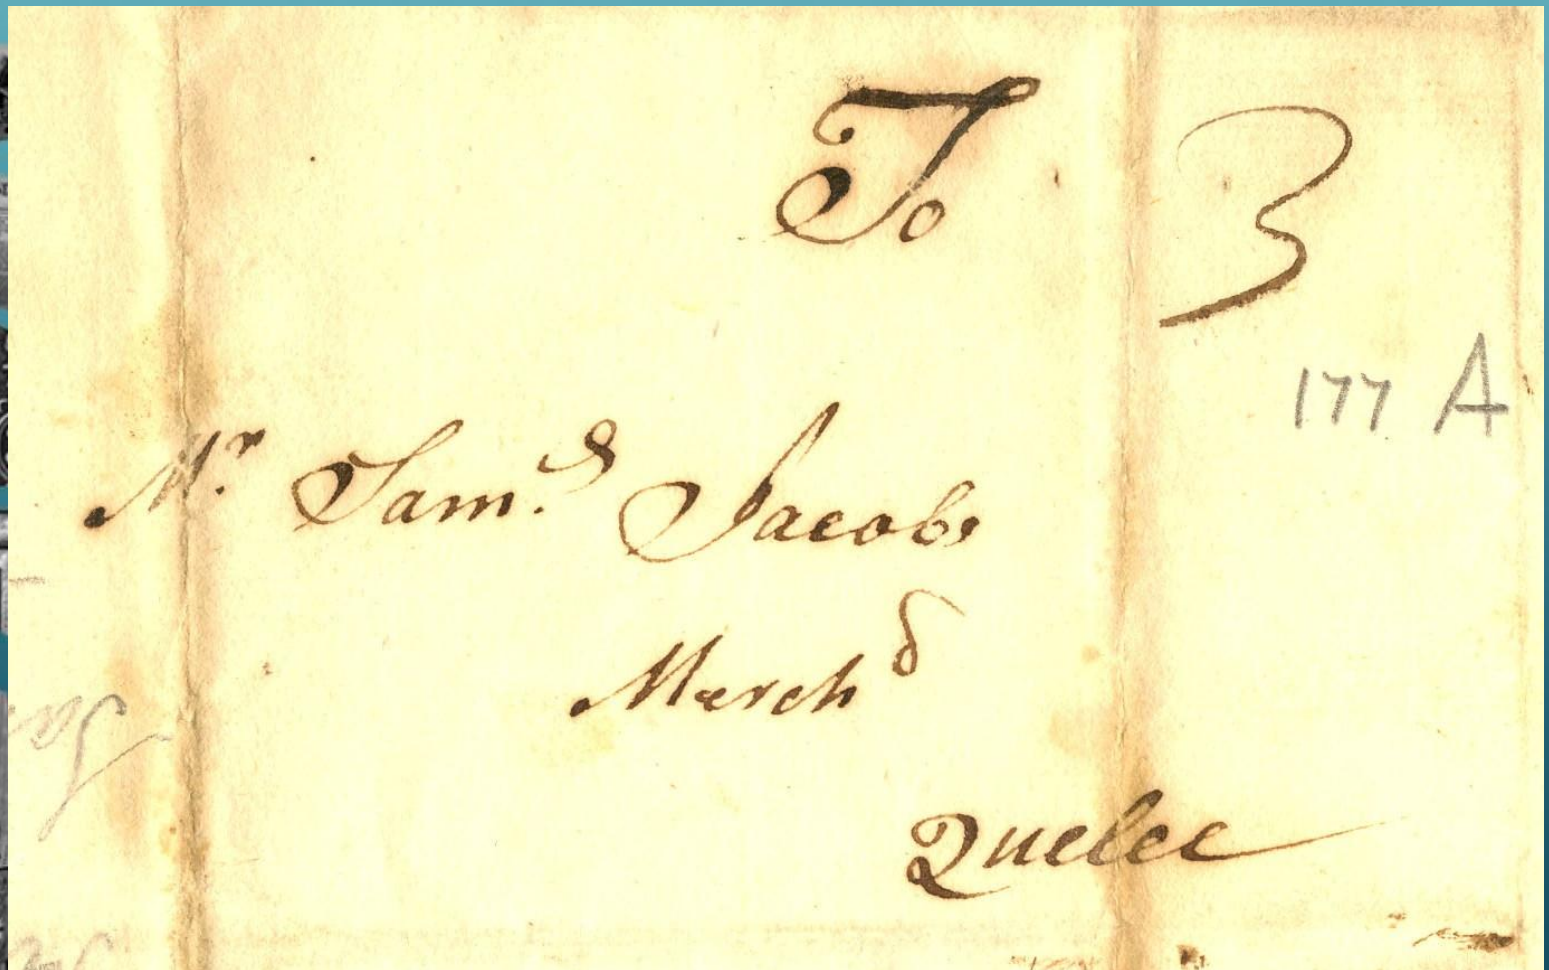 To
3
177 A
Mr. Sam.l Jacobs
Merch.t
Quebec